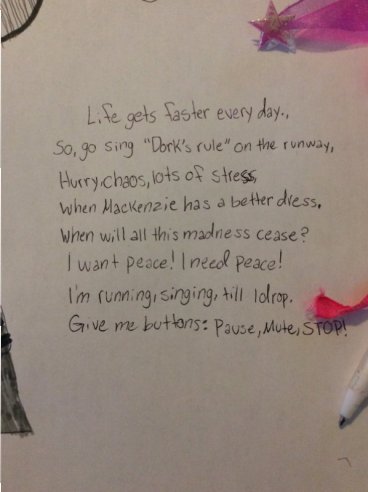 Life gets faster every day.,
So, go sing "Dork's rule" on the runway,
Hurry, chaos, lots of stress
When MacKenzie has a better dress.
When will all this madness cease?
I want peace! I need peace!
I'm running, singing, till I drop.
Give me buttons: Pause, Mute, STOP!